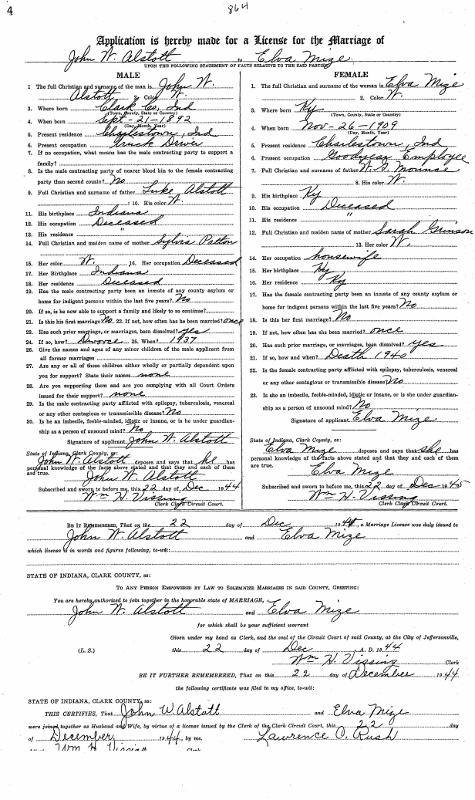 4
864
Application is hereby made for a License for the Marriage of
John W. Alstott to Elva Mize
UPON THE FOLLOWING STATEMENT OF FACTS RELATIVE TO THE SAID PARTIES
MALE
1 The full Christian and surname of the man is John W.
Alstott 2. Color W.
3. Where born Clark Co, Ind
(Town, County, State or County)
4. When born Sept-21-1892
(Day, Month, Year)
5. Present residence Charlestown, Ind
6. Present occupation Truck Driver
7. If no occupation, what means has the male contracting party to support a
family?
8. Is the male contracting party of nearer blood kin to the female contracting
party than second cousin? No
9. Full Christian and surname of father Luke Alstott
10. Color W.
11. His birthplace Indiana
12. His occupation Deceased
13. His residence "
14. Full Christian and maiden name of mother Sylvia Patton
15. Her color W. 16. Her occupation Deceased
17. Her Birthplace Indiana
18. Her residence Deceased
19. Has the male contracting party been an inmate of any county asylum or
home for indigent persons within the last five years? No
20. If so, is he now able to support a family and likely to so continue?
21. Is this his first marriage? No 22. If not, how often has he been married? once
23. Has such prior marriage, or marriages, been dissolved? yes
24. If so, how? Divorce 25. When? 1937
26. Give the names and ages of any minor children of the male applicant from
all former marriages
27. Are any or all of these children either wholly or partially dependent upon
you for support? State their names none
28. Are you supporting them and are you complying with all Court Orders
issued for their support none
29. Is the male contracting party afflicted with epilepsy, tuberculosis, venereal
or any other contagious or transmissible disease? No
30. Is he an imbecile, feeble-minded, idiotic or insane, or is he under guardian-
ship as a person of unsound mind? No
Signature of applicant John W. Alstott
State of Indiana, Clark County, ss:
John W. Alstott deposes and says that he has
personal knowledge of the facts above stated and that they and each of them
are true. John W. Alstott
Subscribed and sworn to before me, this 22 day of Dec 1944
Wm H. Vissing
Clerk Clark Circuit Court.
FEMALE
1. The full Christian and surname of the woman is Elva Mize
2. Color W.
3. Where born Ky
(Town, County, State or County)
4. When born Nov-26-1909
(Day, Month, Year)
5. Present residence Charlestown, Ind
6. Present occupation Goodyear Employee
7. Full Christian and surname of father
8. His color W.
9. His birthplace Ky
10. His occupation Deceased
11. His residence "
12. Full Christian and maiden name of mother Sarah
13. Her color W.
14. Her occupation housewife
15. Her birthplace Ky
16. Her residence Ky
17. Has the female contracting party been an inmate of any county asylum or
home for indigent persons within the last five years? No
18. Is this her first marriage? No
19. If not, how often has she been married? once
20. Has such prior marriage, or marriages, been dissolved? yes
21. If so, how and when? Death 1940
22. Is the female contracting party afflicted with epilepsy, tuberculosis, venereal
or any other contagious or transmissible disease? No
23. Is she an imbecile, feeble-minded, idiotic or insane, or is she under guardian-
ship as a person of unsound mind? No
Signature of applicant Elva Mize
State of Indiana, Clark County, ss:
Elva Mize deposes and says that she has
personal knowledge of the facts above stated and that they and each of them
are true. Elva Mize
Subscribed and sworn to before me, this 22 day of Dec 1945
Wm H. Vissing
Clerk Clark Circuit Court.
BE IT REMEMBERED, That on the 22 day of Dec 1944, a Marriage License was duly issued to
John W. Alstott and Elva Mize
which license is in words and figures following, to-wit:
STATE OF INDIANA, CLARK COUNTY, ss:
TO ANY PERSON EMPOWERED BY LAW TO SOLEMNIZE MARRIAGES IN SAID COUNTY, GREETING:
You are hereby authorized to join together in the honorable state of MARRIAGE,
John W. Alstott and Elva Mize
for which shall be your sufficient warrant
Given under my hand as Clerk, and the seal of the Circuit Court of said County, at the City of Jeffersonville,
(L. S.) this 22 day of Dec A. D. 1944
Wm H. Vissing Clerk
BE IT FURTHER REMEMBERED, That on this 22 day of December 1944
the following certificate was filed in my office, to-wit:
STATE OF INDIANA, CLARK COUNTY, ss:
THIS CERTIFIES, That John W Alstott and Elva Mize
were joined together as Husband and Wife, by virtue of a license issued by the Clerk of the Clark Circuit Court, this 22 day
of December 1944, by me. Lawrence C. Rush
Wm H Vissing